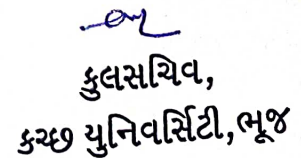 કુલસચિવ,
કચ્છ યુનિવર્સિટી, ભૂજ